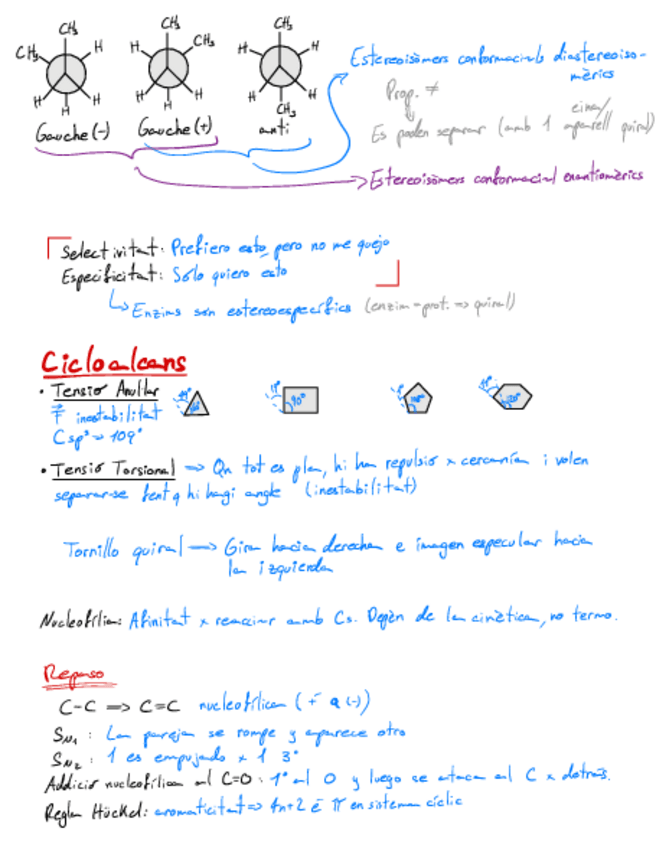 CH₃ CH₃ CH₃
CH₃ H H CH₃ H H
H H H H H H H CH₃ H
Gauche (-) Gauche (+) anti
Estereoisòmers conformacionals diastereoiso-
mèrics
Prop. ≠
eina/
Es poden separar (amb 1 aparell quiral)
Estereoisòmers conformacional enantiomèrics
Selectivitat: Prefiero esto, pero no me quejo
Especificitat: Sólo quiero esto
↳ Enzims són estereoespecífics (enzim = prot. => quiral)
Cicloalcans
• Tensió Anular
inestabilitat
Csp³ → 109°
90°
• Tensió Torsional → Qn tot es pla, hi ha repulsió x cercanía i volen
separar-se fent q hi hagi angle (inestabilitat)
Tornillo quiral → Gira hacia derecha e imagen especular hacia
la izquierda
Nucleofília: Afinitat x reaccinar amb Cs. Depèn de la cinètica, no termo.
Repaso
C-C => C=C nucleofílica (+ a (-))
SN₁: La pareja se rompe y aparece otro
SN₂: 1 es empujado x 1 3°
Addició nucleofílica al C=O: 1° al O y luego se ataca al C x detrás.
Regla Hückel: aromaticitat => 4n+2 ē π en sistema cíclic